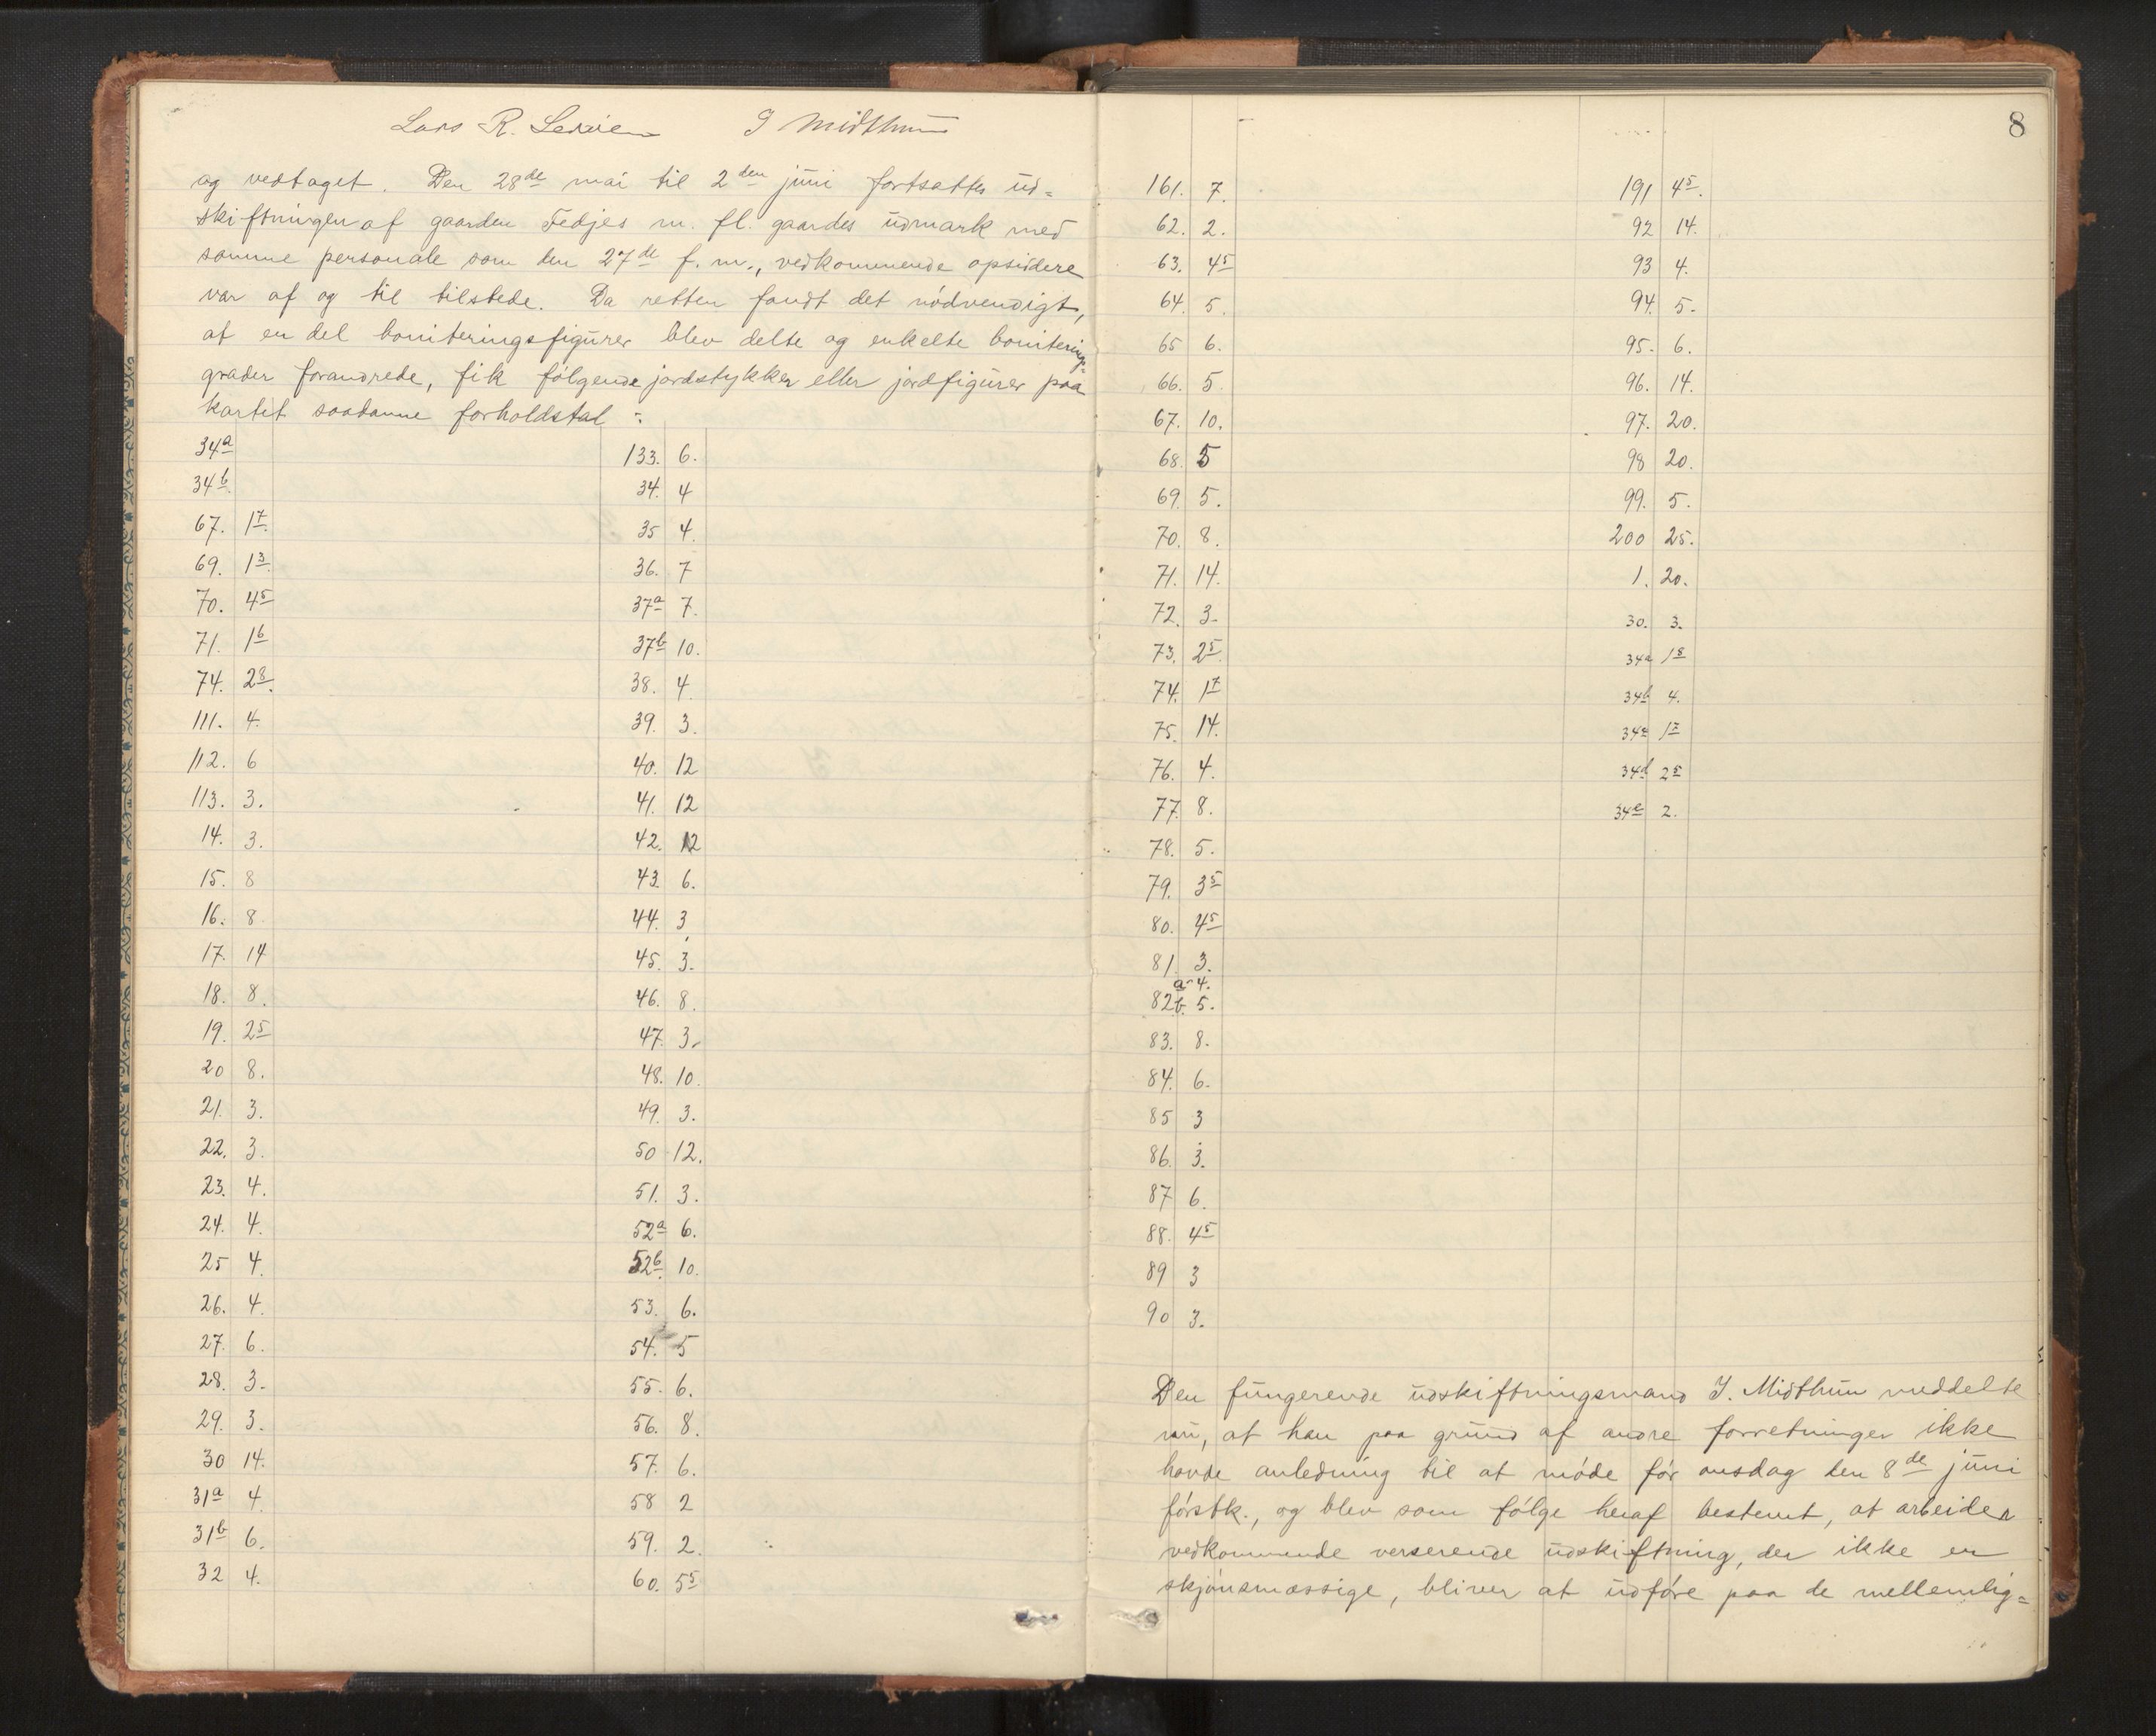 Lars R. I Midthun
og vedtaget. Den 28de mai til 2den juni fortsattes ud=
skiftningen af gaarden Fedjes m. fl. gaardes udmark med
samme personale som den 27de f. m., vedkommende opsiddere
var af og til tilstede. Da retten fandt det nødvendigt,
at en del boniteringsfigurer blev delte og enkelte boniterings=
grader forandrede, fik følgende jordstykker eller jordfigurer paa
kartet saadanne forholdstal :
34a
34b
67. 17.
69. 13.
70. 45
71. 16
74. 28.
111. 4.
112. 6
113. 3.
14. 3.
15. 8
16. 8.
17. 14
18. 8.
19. 25
20 8.
21. 3.
22. 3.
23. 4.
24. 4.
25 4.
26. 4.
27. 6.
28. 3.
29. 3.
30 14.
31a 4.
31b 6.
32 4.
133. 6.
34. 4
35 4.
36. 7
37a 7.
37b 10.
38. 4.
39. 3.
40. 12
41. 12
42. 12
43. 6.
44. 3
45. 3.
46. 8.
47. 3.
48. 10.
49. 3.
50 12.
51. 3.
52a 6.
52b. 10.
53. 6.
54. 5
55. 6.
56. 8.
57. 6.
58 2
59. 2.
60. 55
8
161. 7.
62. 2.
63. 45
64. 5.
65 6.
66. 5.
67. 10.
68. 5
69. 5.
70. 8.
71. 14.
72. 3.
73. 25.
74. 17
75. 14.
76. 4.
77. 8.
78. 5.
79. 35
80. 45
81. 3.
a 4.
82b. 5.
83. 8.
84. 6.
85 3
86. 3.
87 6.
88. 45
89 3
90 3.
191 45.
92 14.
93 4.
94. 5.
95. 6.
96. 14.
97. 20.
98 20.
99. 5.
200 25.
1. 20.
30. 3.
34a 18
34b 4.
34c 17
34d 25
34e 2.
Den fungerende udskiftningsmand I. Midthun meddelte
nu, at han paa grund af andre forretninger ikke
havde anledning til at møde før onsdag den 8de juni
førstk., og blev som følge heraf bestemt, at arbeider
vedkommende verserende udskiftning, der ikke er
skjønsmæssige, bliver at udføre paa de mellemlig=